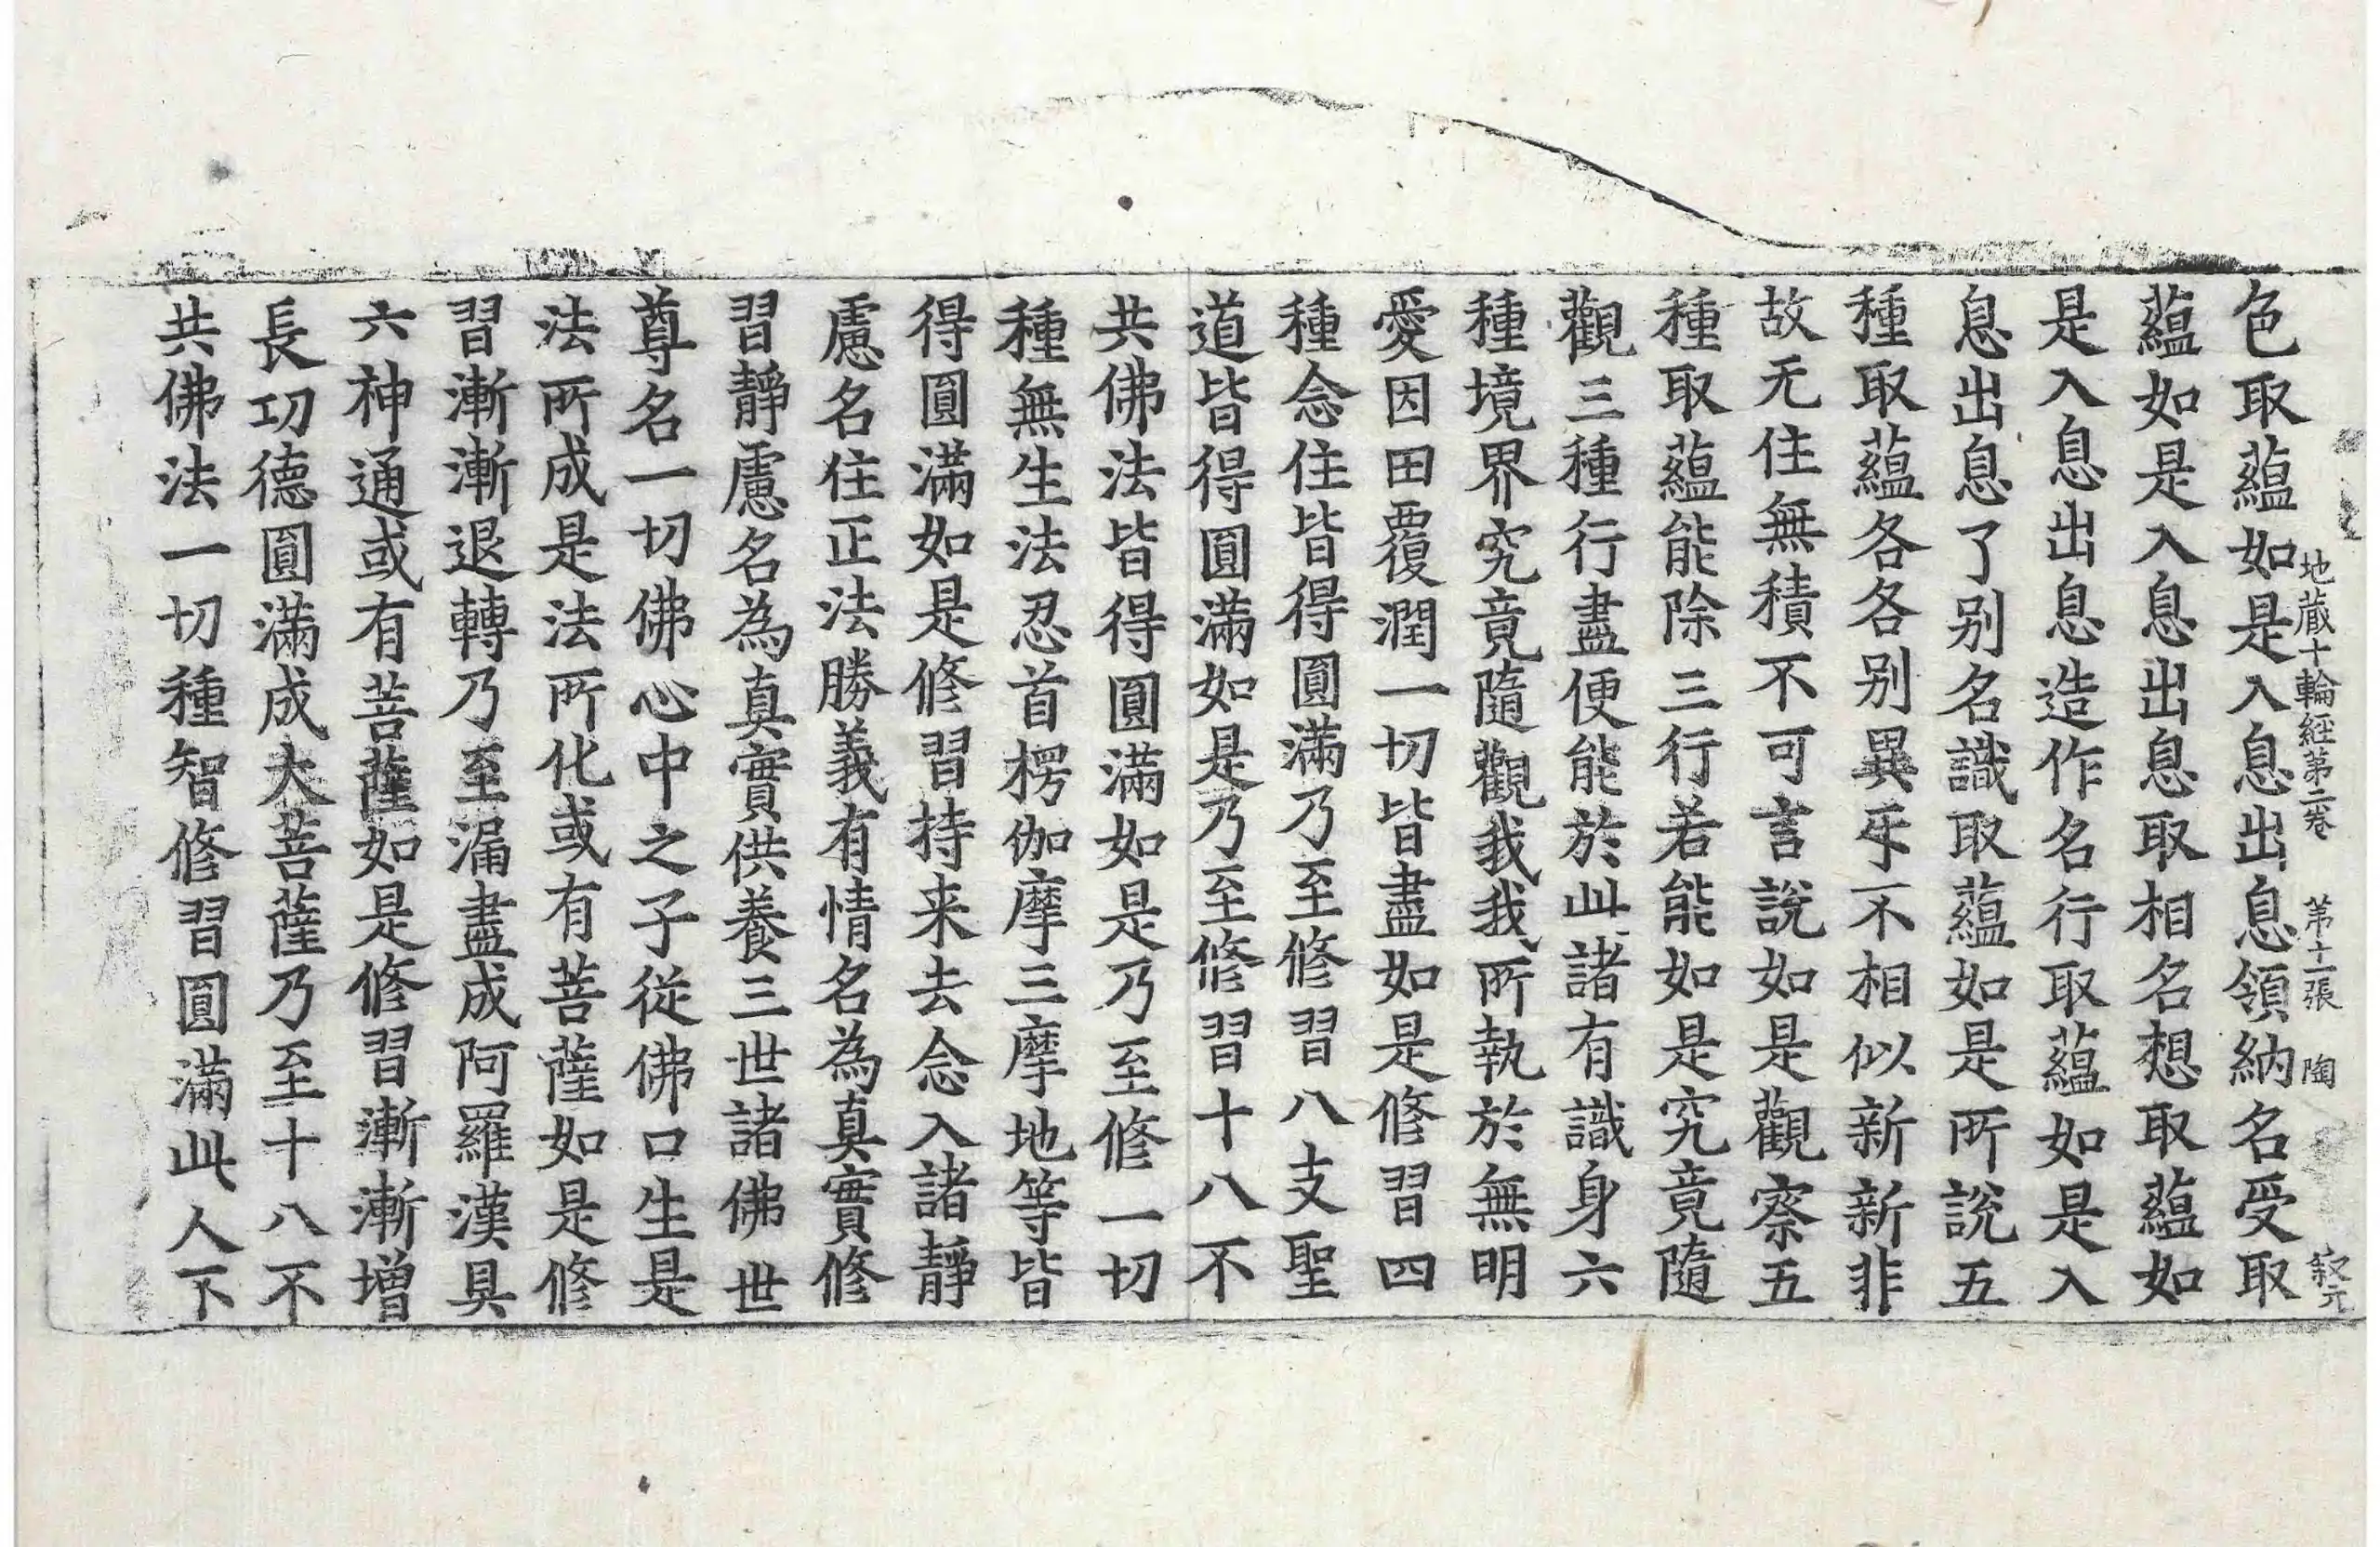 地蔵十輪經第二卷 第十一張 陶 叙元
色取蘊如是入息出息領納名受取
蘊如是入息出息取相名想取蘊如
是入息出息造作名行取蘊如是入
息出息了别名識取蘊如是所說五
種取蘊各各别異𠃔不相似新新非
故无住無積不可言說如是觀察五
種取蘊能除三行若能如是究竟隨
觀三種行盡便能於此諸有識身六
種境界究竟隨觀我我所執於無明
愛因田覆潤一切皆盡如是修習四
種念住皆得圓滿乃至修習八支聖
道皆得圓滿如是乃至修習十八不
共佛法皆得圓滿如是乃至修一切
種無生法忍首楞伽摩三摩地等皆
得圓滿如是修習持来去念入諸靜
慮名住正法勝義有情名為真實修
習靜慮名為真實供養三世諸佛世
尊名一切佛心中之子從佛口生是
法所成是法所化或有菩薩如是修
習漸漸退轉乃至漏盡成阿羅漢具
六神通或有菩薩如是修習漸漸增
長功德圓滿成大菩薩乃至十八不
共佛法一切種智修習圓滿此人不